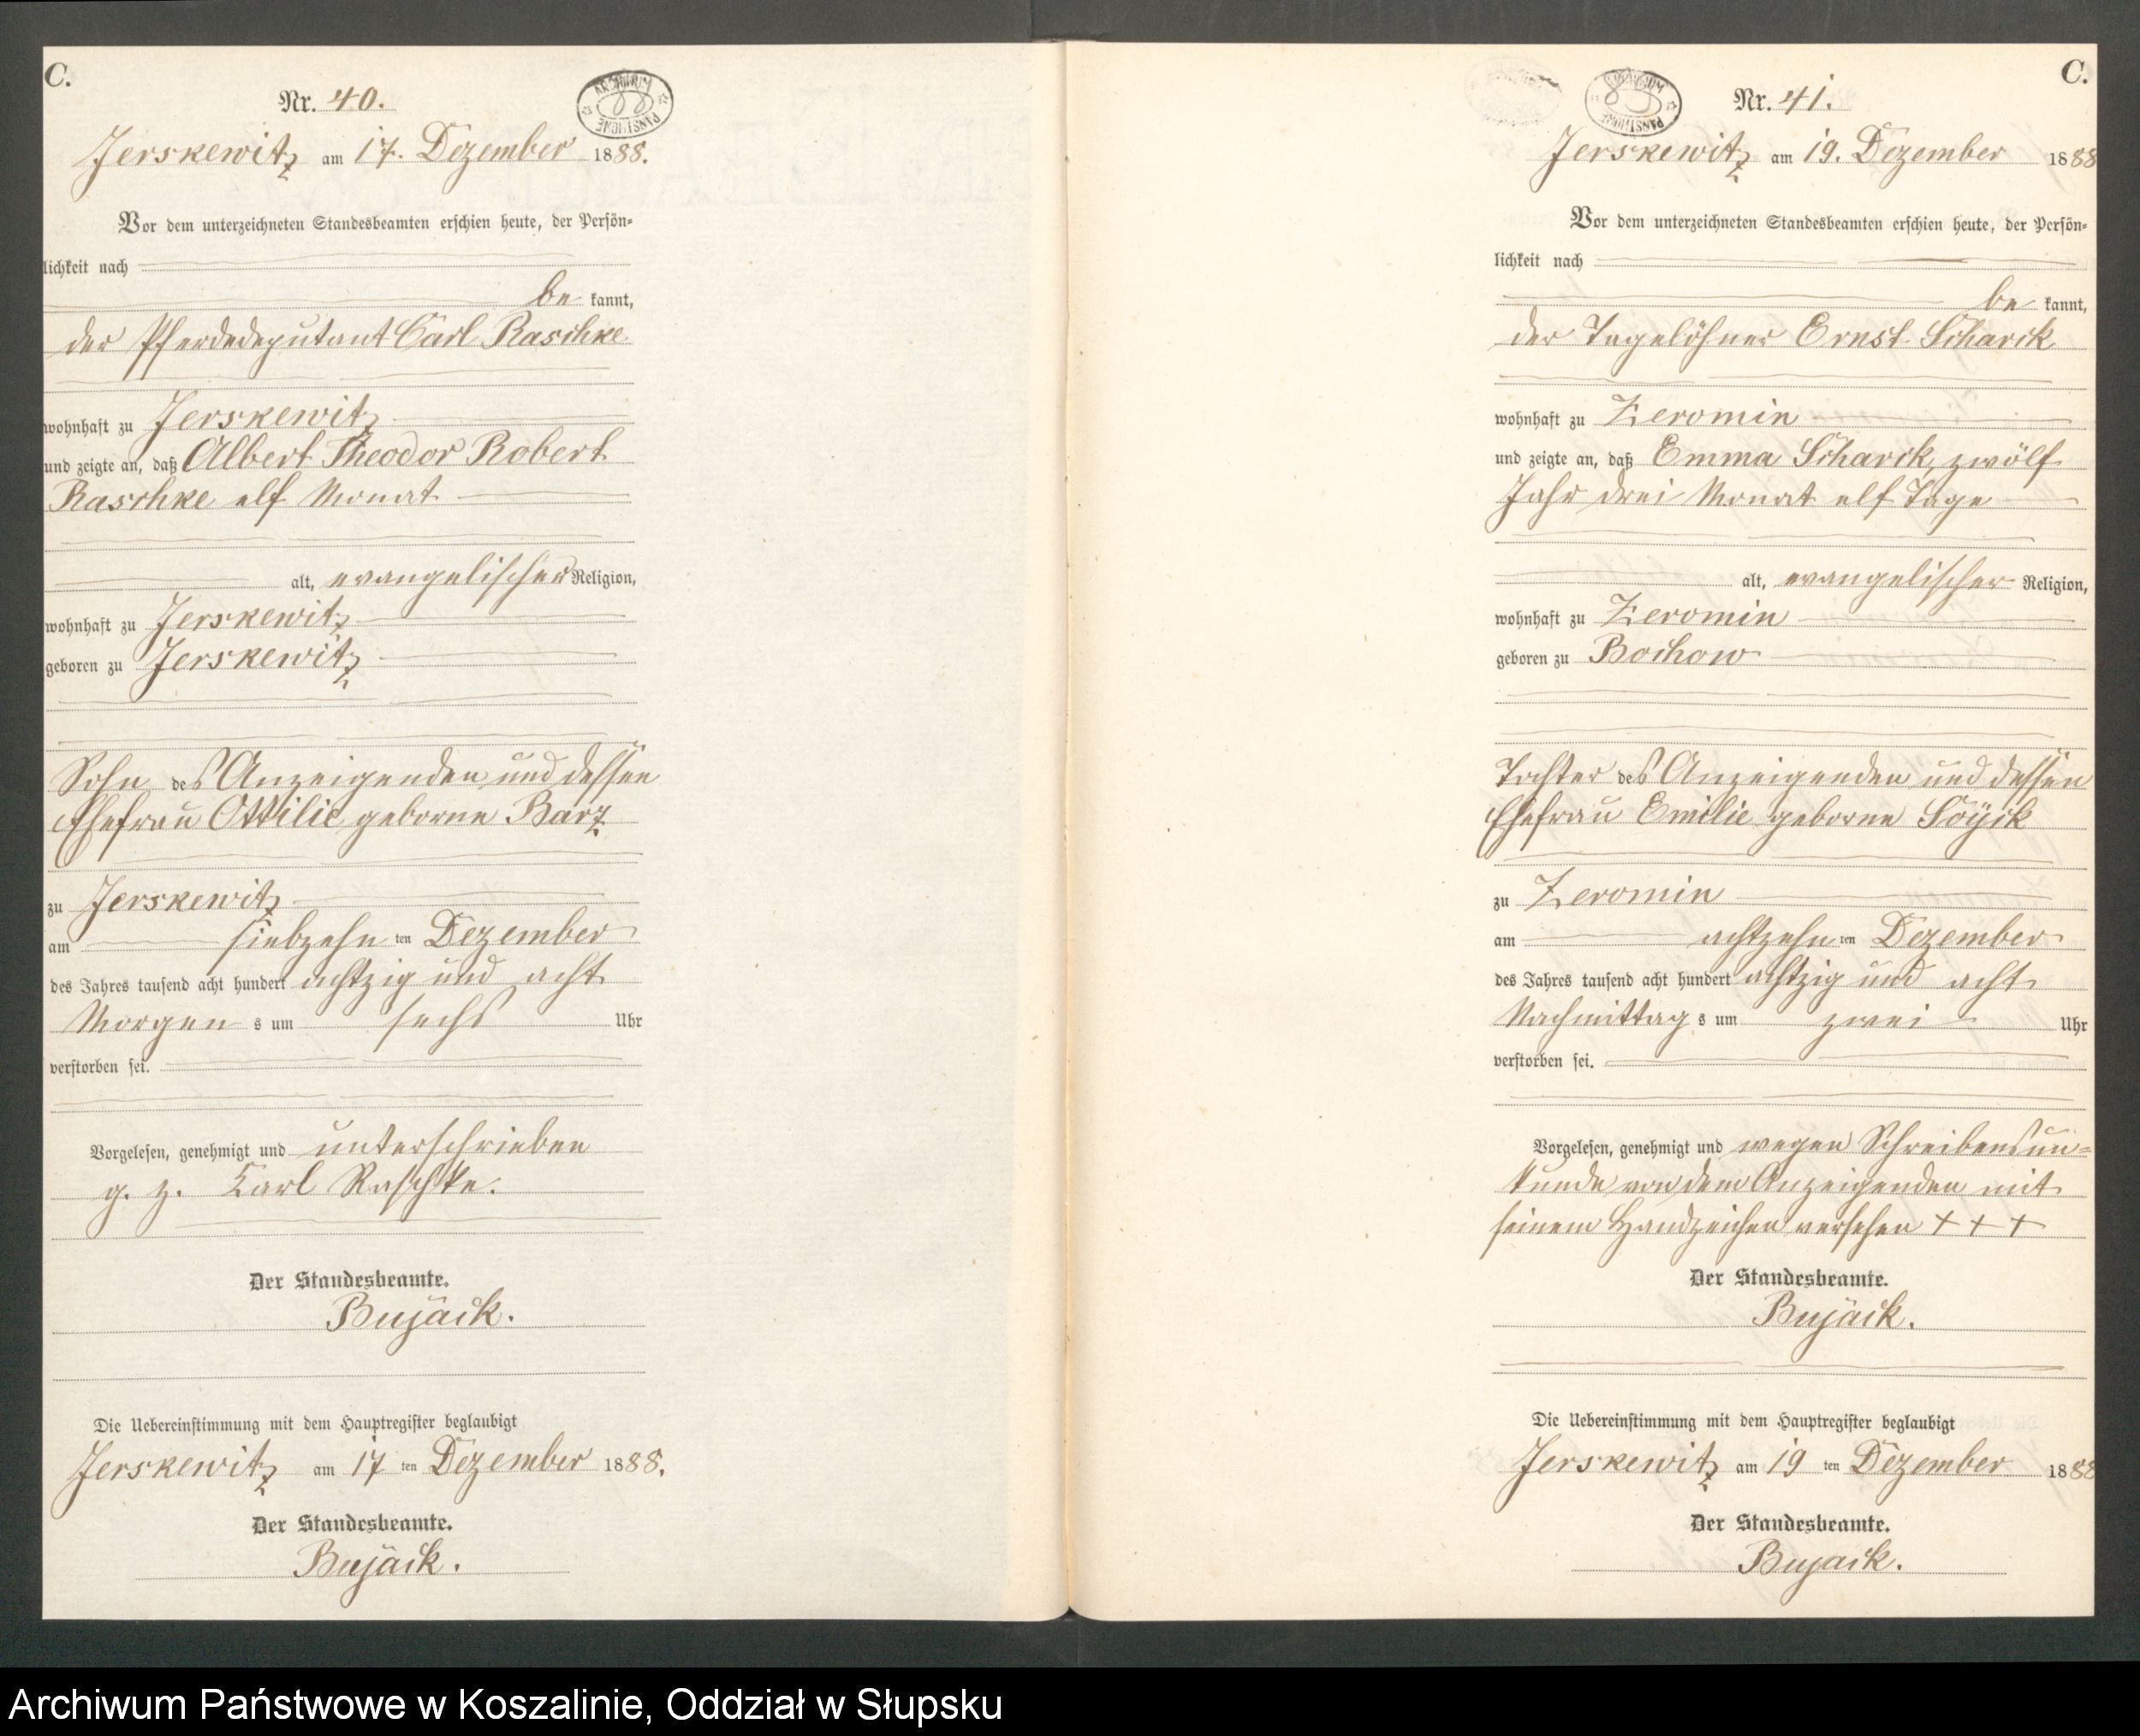 C.
Nr. 40.
ARCHIWUM PAŃSTWOWE
88
Jerskewitz am 17. Dezember 1888.
Vor dem unterzeichneten Standesbeamten erschien heute, der Persön-
lichkeit nach
be kannt,
der Pferdedeputant Carl Raschke
wohnhaft zu Jerskewitz
und zeigte an, daß Albert Theodor Robert
Raschke elf Monat
alt, evangelischer Religion,
wohnhaft zu Jerskewitz
geboren zu Jerskewitz
Sohn des Anzeigenden und dessen
Ehefrau Ottilie geborne Barz
zu Jerskewitz
am siebzehn ten Dezember
des Jahres tausend acht hundert achtzig und acht
Morgen s um sechs Uhr
verstorben sei.
Vorgelesen, genehmigt und unterschrieben
g. z. Karl Raschke.
Der Standesbeamte.
Bujack.
Die Uebereinstimmung mit dem Hauptregister beglaubigt
Jerskewitz am 17 ten Dezember 1888.
Der Standesbeamte.
Bujack.
C.
ARCHIWUM PAŃSTWOWE
Nr. 41.
Jerskewitz am 19. Dezember 1888
Vor dem unterzeichneten Standesbeamten erschien heute, der Persön-
lichkeit nach
be kannt,
der Tagelöhner Ernst Scharck
wohnhaft zu Zeromin
und zeigte an, daß Emma Scharck, zwölf
Jahr drei Monat elf Tage
alt, evangelischer Religion,
wohnhaft zu Zeromin
geboren zu Bochow
Tochter des Anzeigenden und dessen
Ehefrau Emilie geborne
zu Zeromin
am achtzehn ten Dezember
des Jahres tausend acht hundert achtzig und acht
Nachmittag s um zwei Uhr
verstorben sei.
Vorgelesen, genehmigt und wegen Schreibensun-
kunde von dem Anzeigenden mit
seinem Handzeichen versehen + + +
Der Standesbeamte.
Bujack.
Die Uebereinstimmung mit dem Hauptregister beglaubigt
Jerskewitz am 19 ten Dezember 1888
Der Standesbeamte.
Bujack.
Archiwum Państwowe w Koszalinie, Oddział w Słupsku